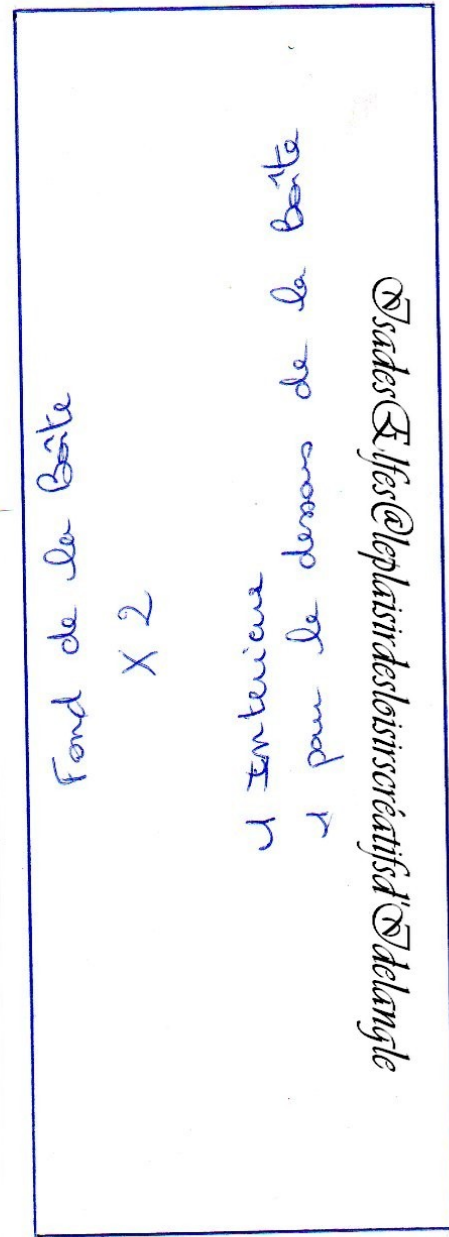 Fond de la Boîte
X 2
1 Interieur
1 pour le dessous de la Boîte
IsadesElfes@leplaisirdesloisirscréatifsd'Idelangle